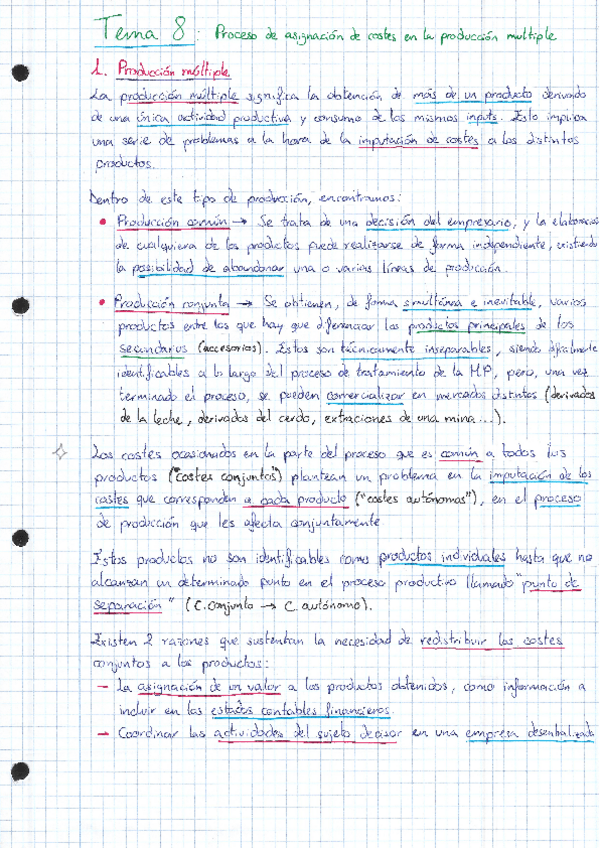 Tema 8: Proceso de asignación de costes en la producción multiple
1. Producción múltiple
La producción múltiple significa la obtención de más de un producto derivado
de una única actividad productiva y consumo de los mismos inputs. Esto implica
una serie de problemas a la hora de la imputación de costes a los distintos
productos.
Dentro de este tipo de producción, encontramos:
• Producción común → Se trata de una decisión del empresario, y la elaboración
de cualquiera de los productos puede realizarse de forma independiente, existiendo
la posibilidad de abandonar una o varias líneas de producción.
• Producción conjunta → Se obtienen, de forma simultánea e inevitable, varios
productos entre los que hay que diferenciar los productos principales de los
secundarios (accesorios). Estos son técnicamente inseparables, siendo difícilmente
identificables a lo largo del proceso de tratamiento de la MP, pero, una vez
terminado el proceso, se pueden comercializar en mercados distintos (derivados
de la leche, derivados del cerdo, extracciones de una mina...).
Los costes ocasionados en la parte del proceso que es común a todos los
productos ("costes conjuntos") plantean un problema en la imputación de los
costes que corresponden a cada producto ("costes autónomos"), en el proceso
de producción que les afecta conjuntamente
Estos productos no son identificables como productos individuales hasta que no
alcanzan un determinado punto en el proceso productivo llamado "punto de
separación" (C.conjunto → C. autónomo).
Existen 2 razones que sustentan la necesidad de redistribuir los costes
conjuntos a los productos:
- La asignación de un valor a los productos obtenidos, como información a
incluir en los estados contables financieros.
- Coordinar las actividades del sujeto decisor en una empresa